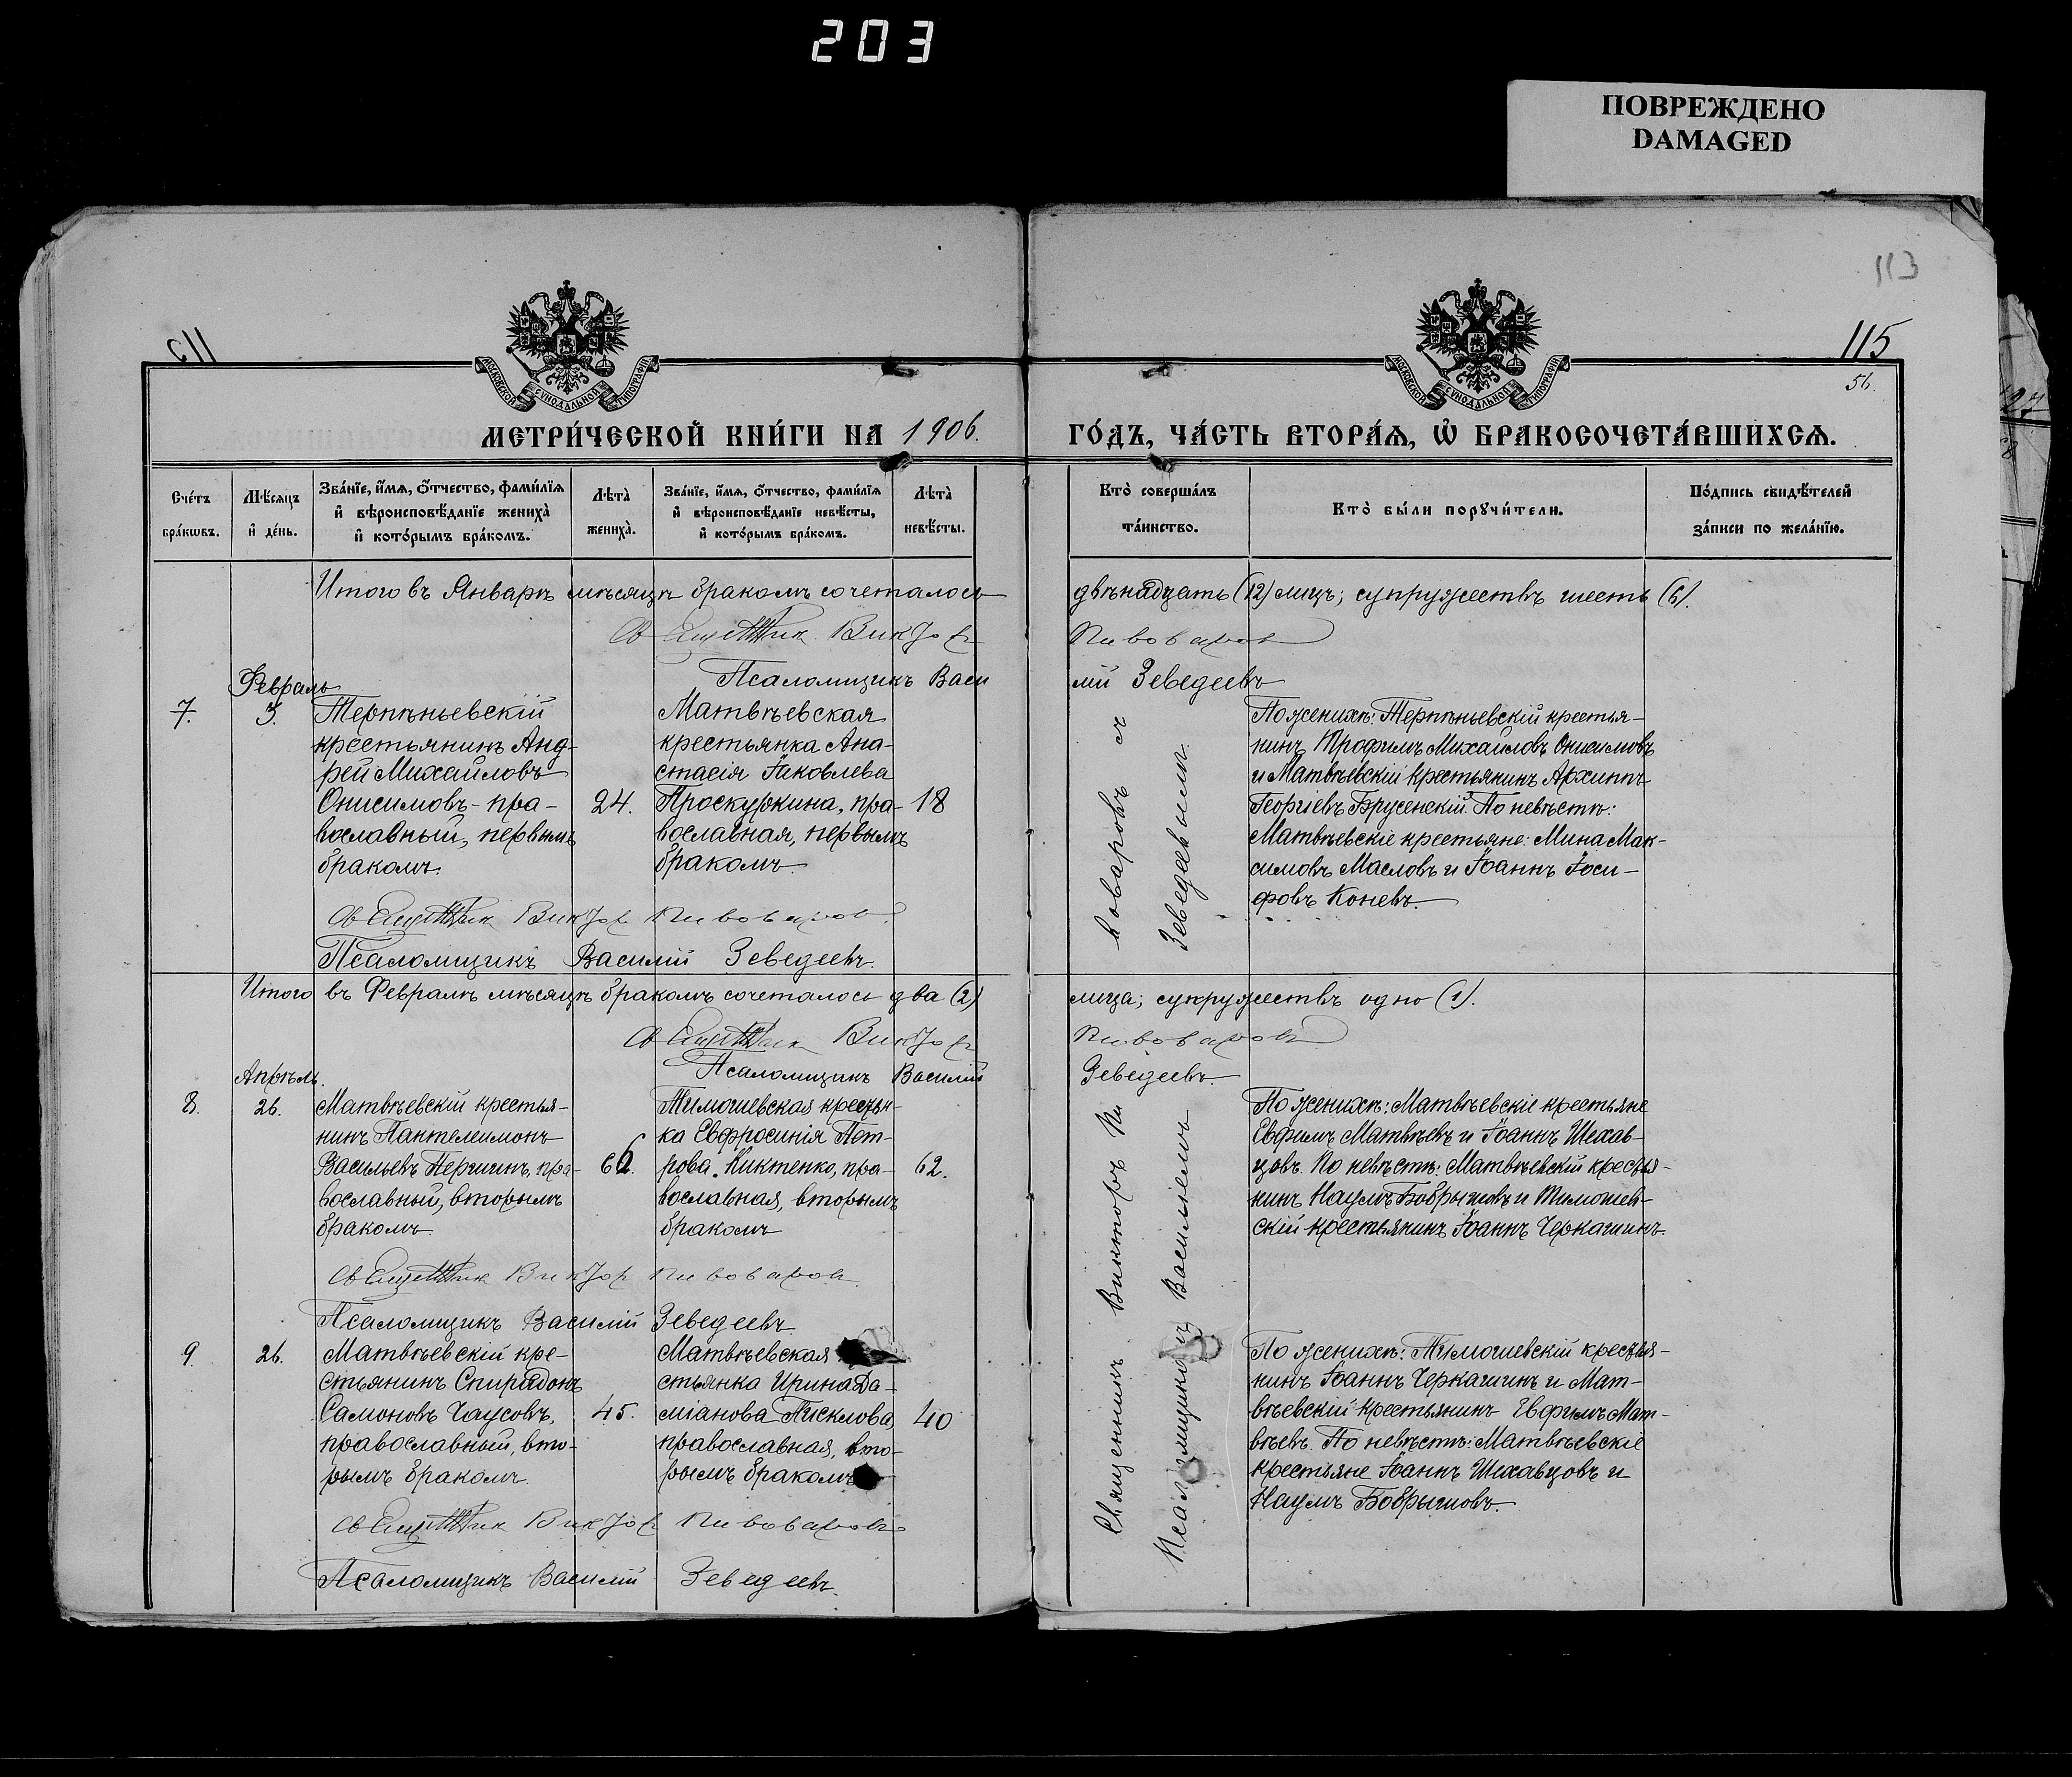 203
ПОВРЕЖДЕНО
DAMAGED
113
115
56.
МОСКОВСКОЙ СѴНОДАЛЬНОЙ ТИПОГРАФІИ
МОСКОВСКОЙ СѴНОДАЛЬНОЙ ТИПОГРАФІИ
МЕТРИ́ЧЕСКОЙ КНИ́ГИ НА 1906. ГО́ДЪ, ЧА́СТЬ ВТОРА́Ѧ, Ѽ БРАКОСОЧЕТА́ВШИХСѦ.
Сче́тъ бра́кѡвъ.
Мѣ́сѧцъ и҆ де́нь.
Зва́нїе, и҆́мѧ, ѻ҆́тчество, фами́лїѧ
и҆ вѣроисповѣ́данїе жениха̀
и҆ кото́рымъ бра́комъ.
Лѣта̀ жениха̀.
Зва́нїе, и҆́мѧ, ѻ҆́тчество, фами́лїѧ
и҆ вѣроисповѣ́данїе невѣ́сты,
и҆ кото́рымъ бра́комъ.
Лѣта̀ невѣ́сты.
Кто̀ соверша́лъ
та́инство.
Кто̀ бы́ли порꙋчи́тели.
По́дпись свидѣ́телей
за́писи по жела́нїю.
Итого въ Январѣ мѣсяцѣ бракомъ сочеталось двѣнадцать (12) лицъ; супружествъ шесть (6).
Священник Виктор Пивоваров
Псаломщикъ Василій Зеведеевъ
Февраль
7. 5. Терпѣньевскій
крестьянинъ Анд-
рей Михайловъ
Онисимовъ - пра-
вославный, первымъ
бракомъ.
24.
Матвѣевская
крестьянка Ана-
стасія Іаковлева
Проскуркина, пра-
вославная, первымъ
бракомъ.
18
По женихѣ: Терпѣньевскій крестья-
нинъ Трофимъ Михайловъ Онисимовъ
и Матвѣевскій крестьянинъ Архиппъ
Георгіевъ Брусенскій. По невѣстѣ:
Матвѣевскіе крестьяне: Мина Мак-
симовъ Масловъ и Іоаннъ Іоси-
фовъ Коневъ.
Священник Виктор Пивоваров
Псаломщикъ Василій Зеведеевъ.
Итого въ Февралѣ мѣсяцѣ бракомъ сочеталось два (2) лица; супружествъ одно (1).
Священник Виктор Пивоваров
Псаломщикъ Василій Зеведеевъ.
Апрѣль.
8. 26. Матвѣевскій крестья-
нинъ Пантелеимонъ
Васильевъ Першинъ, пра-
вославный, вторымъ
бракомъ.
66.
Тимошевская крестьян-
ка Евфросинія Пет-
рова Никтенко, пра-
вославная, вторымъ
бракомъ
62.
По женихѣ: Матвѣевскіе крестьяне
Евфимъ Матвѣевъ и Іоаннъ Шехав-
цовъ. По невѣстѣ: Матвѣевскій крестья-
нинъ Наумъ Бобрышовъ и Тимошев-
скій крестьянинъ Іоаннъ Черкашинъ.
Священник Виктор Пивоваров.
Псаломщикъ Василій Зеведеевъ.
9 26. Матвѣевскій кре-
стьянинъ Спиридонъ
Самоновъ Чаусовъ,
православный, вто-
рымъ бракомъ.
45.
Матвѣевская
стьянка Ирина Да-
міанова Писклова,
православная, вто-
рымъ бракомъ
40
По женихѣ: Тимошевскій крестья-
нинъ Іоаннъ Черкашинъ и Мат-
вѣевскій крестьянинъ Евфимъ Мат-
вѣевъ. По невѣстѣ: Матвѣевскіе
крестьяне Іоаннъ Шехавцовъ и
Наумъ Бобрышовъ.
Священник Виктор Пивоваров
Псаломщикъ Василій Зеведеевъ.
Священникъ Викторъ Пивоваровъ съ
Псаломщикомъ Василіемъ Зеведеевымъ.